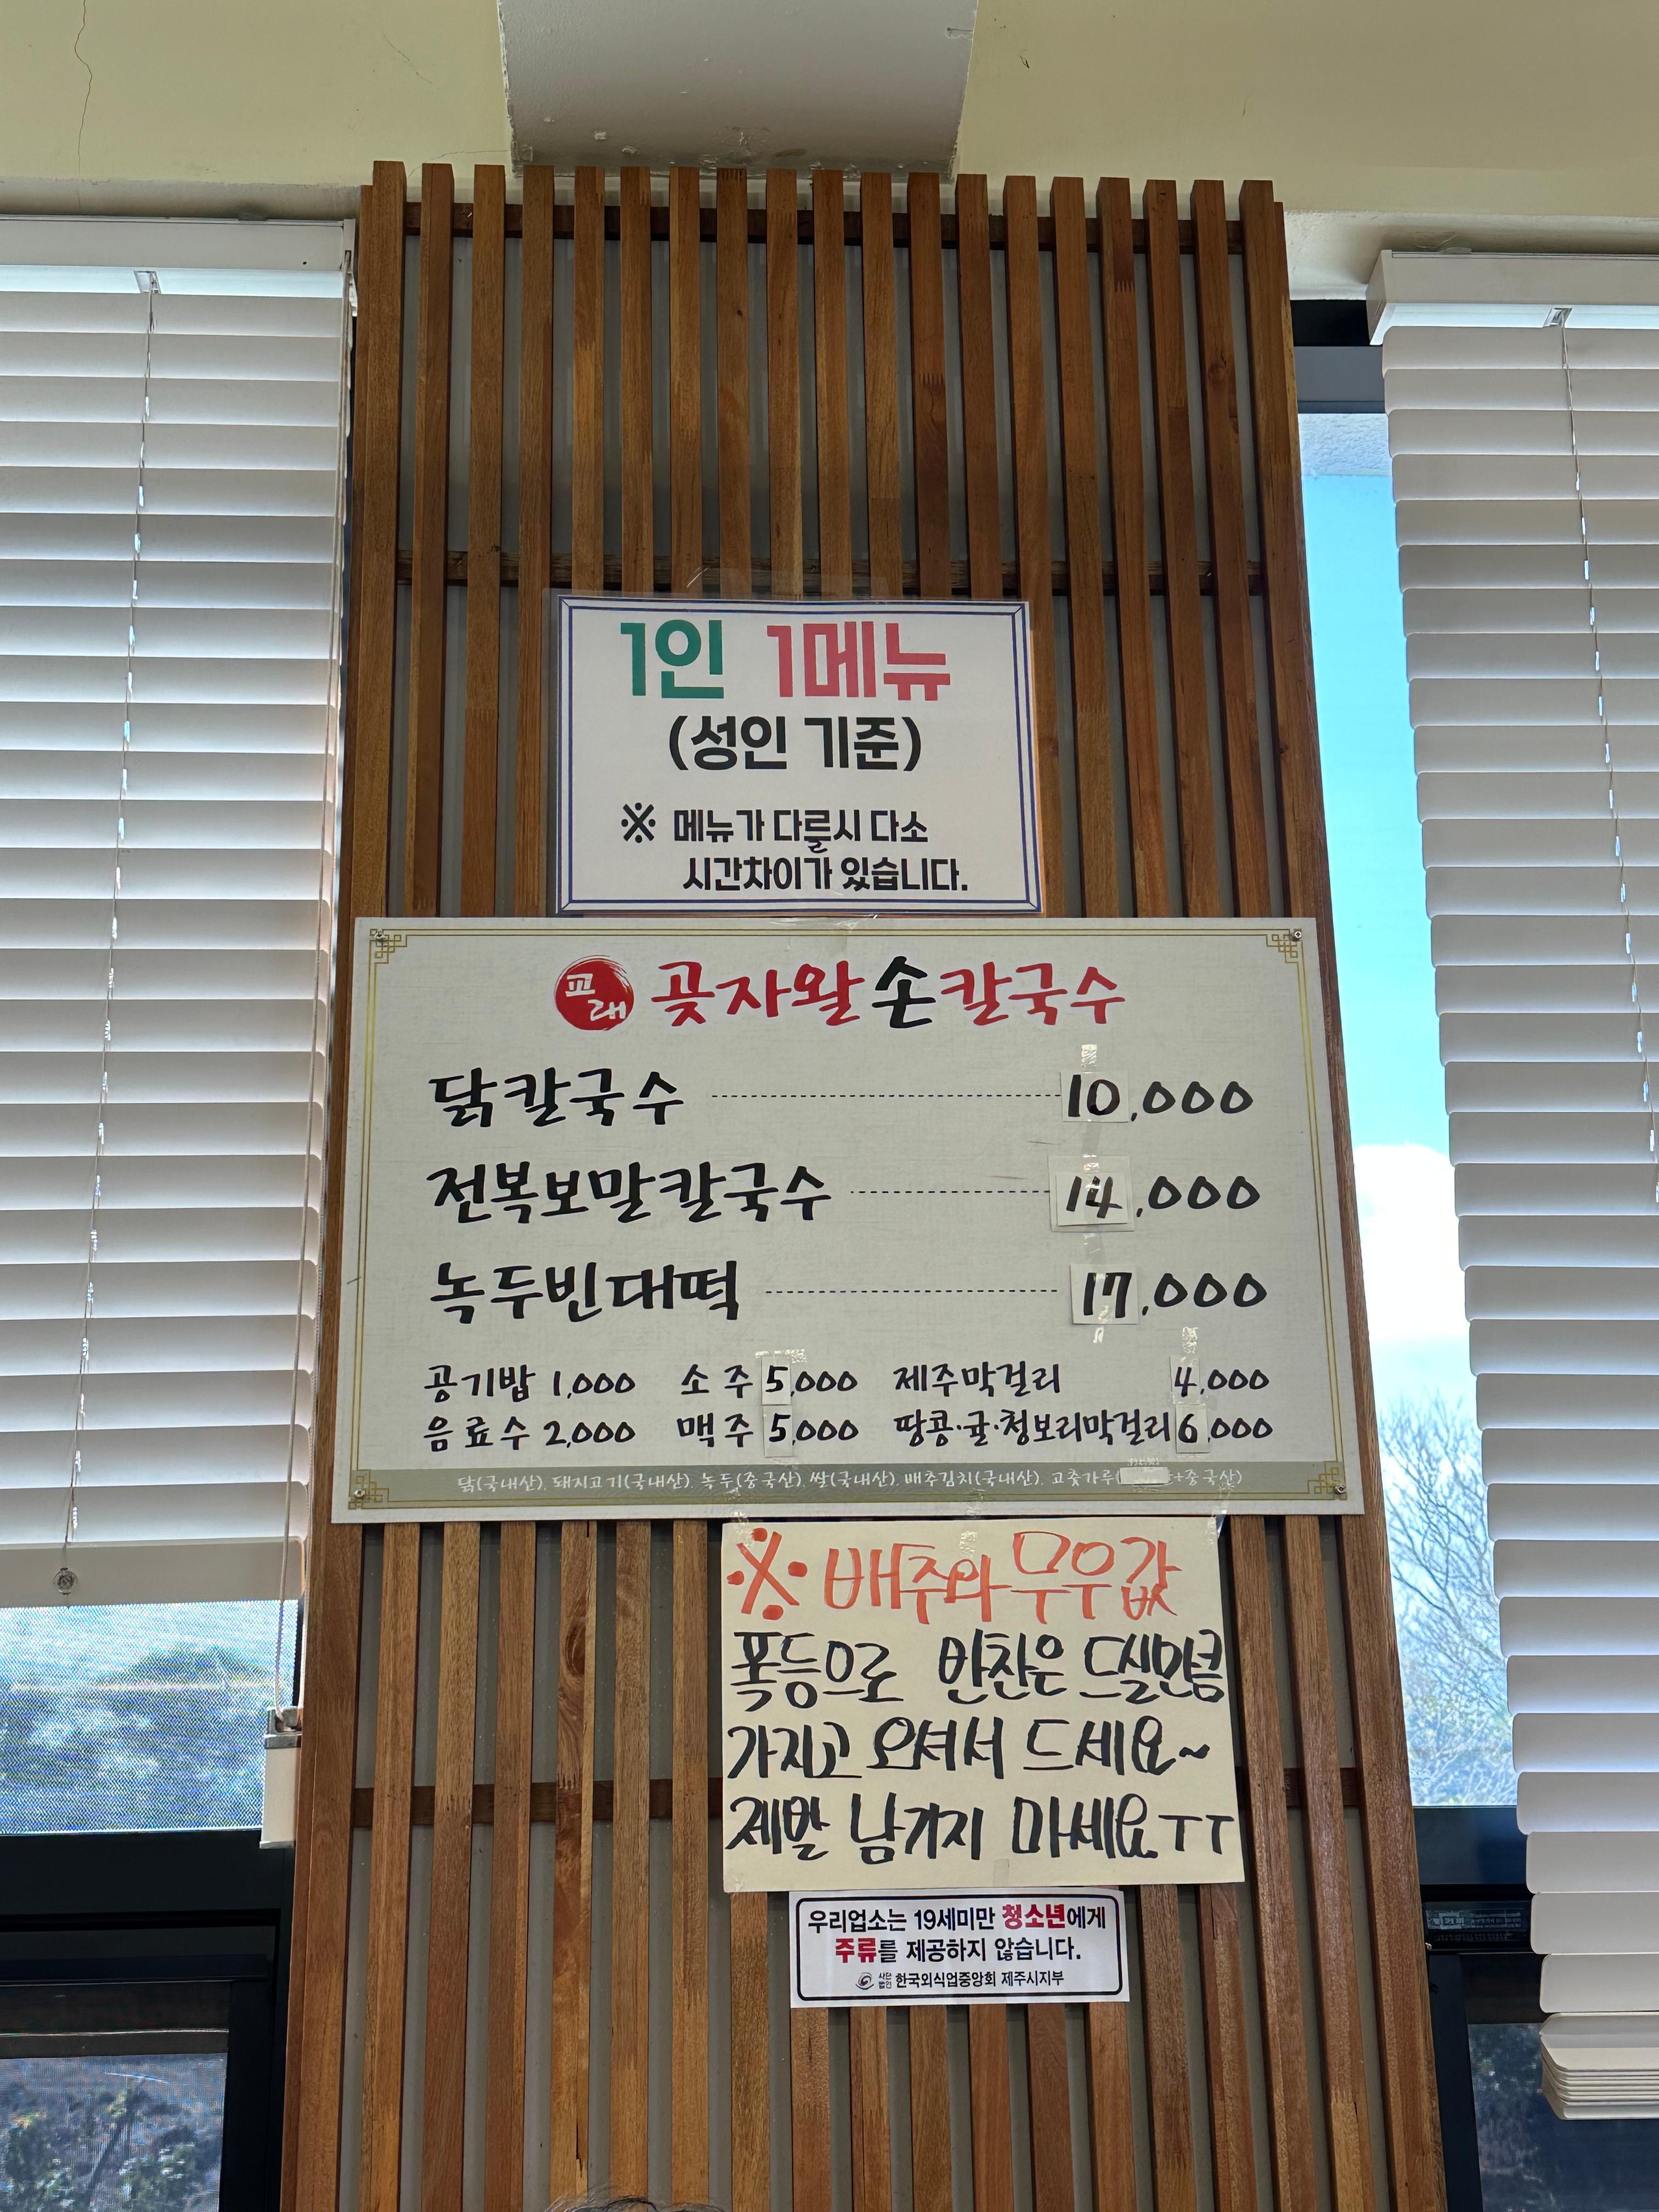 1인 1메뉴
(성인 기준)
※ 메뉴가 다를시 다소
시간차이가 있습니다.
교래 곶자왈손칼국수
닭칼국수 10,000
전복보말칼국수 14,000
녹두빈대떡 17,000
공기밥 1,000 소주 5,000 제주막걸리 4,000
음료수 2,000 맥주 5,000 땅콩·귤·청보리막걸리 6,000
닭(국내산), 돼지고기(국내산), 녹두(중국산), 쌀(국내산), 배추김치(국내산), 고춧가루(+중국산)
※ 배추와 무우값
폭등으로 반찬은 드실만큼
가지고 오셔서 드세요~
제발 남기지 마세요 ㅜㅜ
우리업소는 19세미만 청소년에게
주류를 제공하지 않습니다.
사단법인 한국외식업중앙회 제주시지부